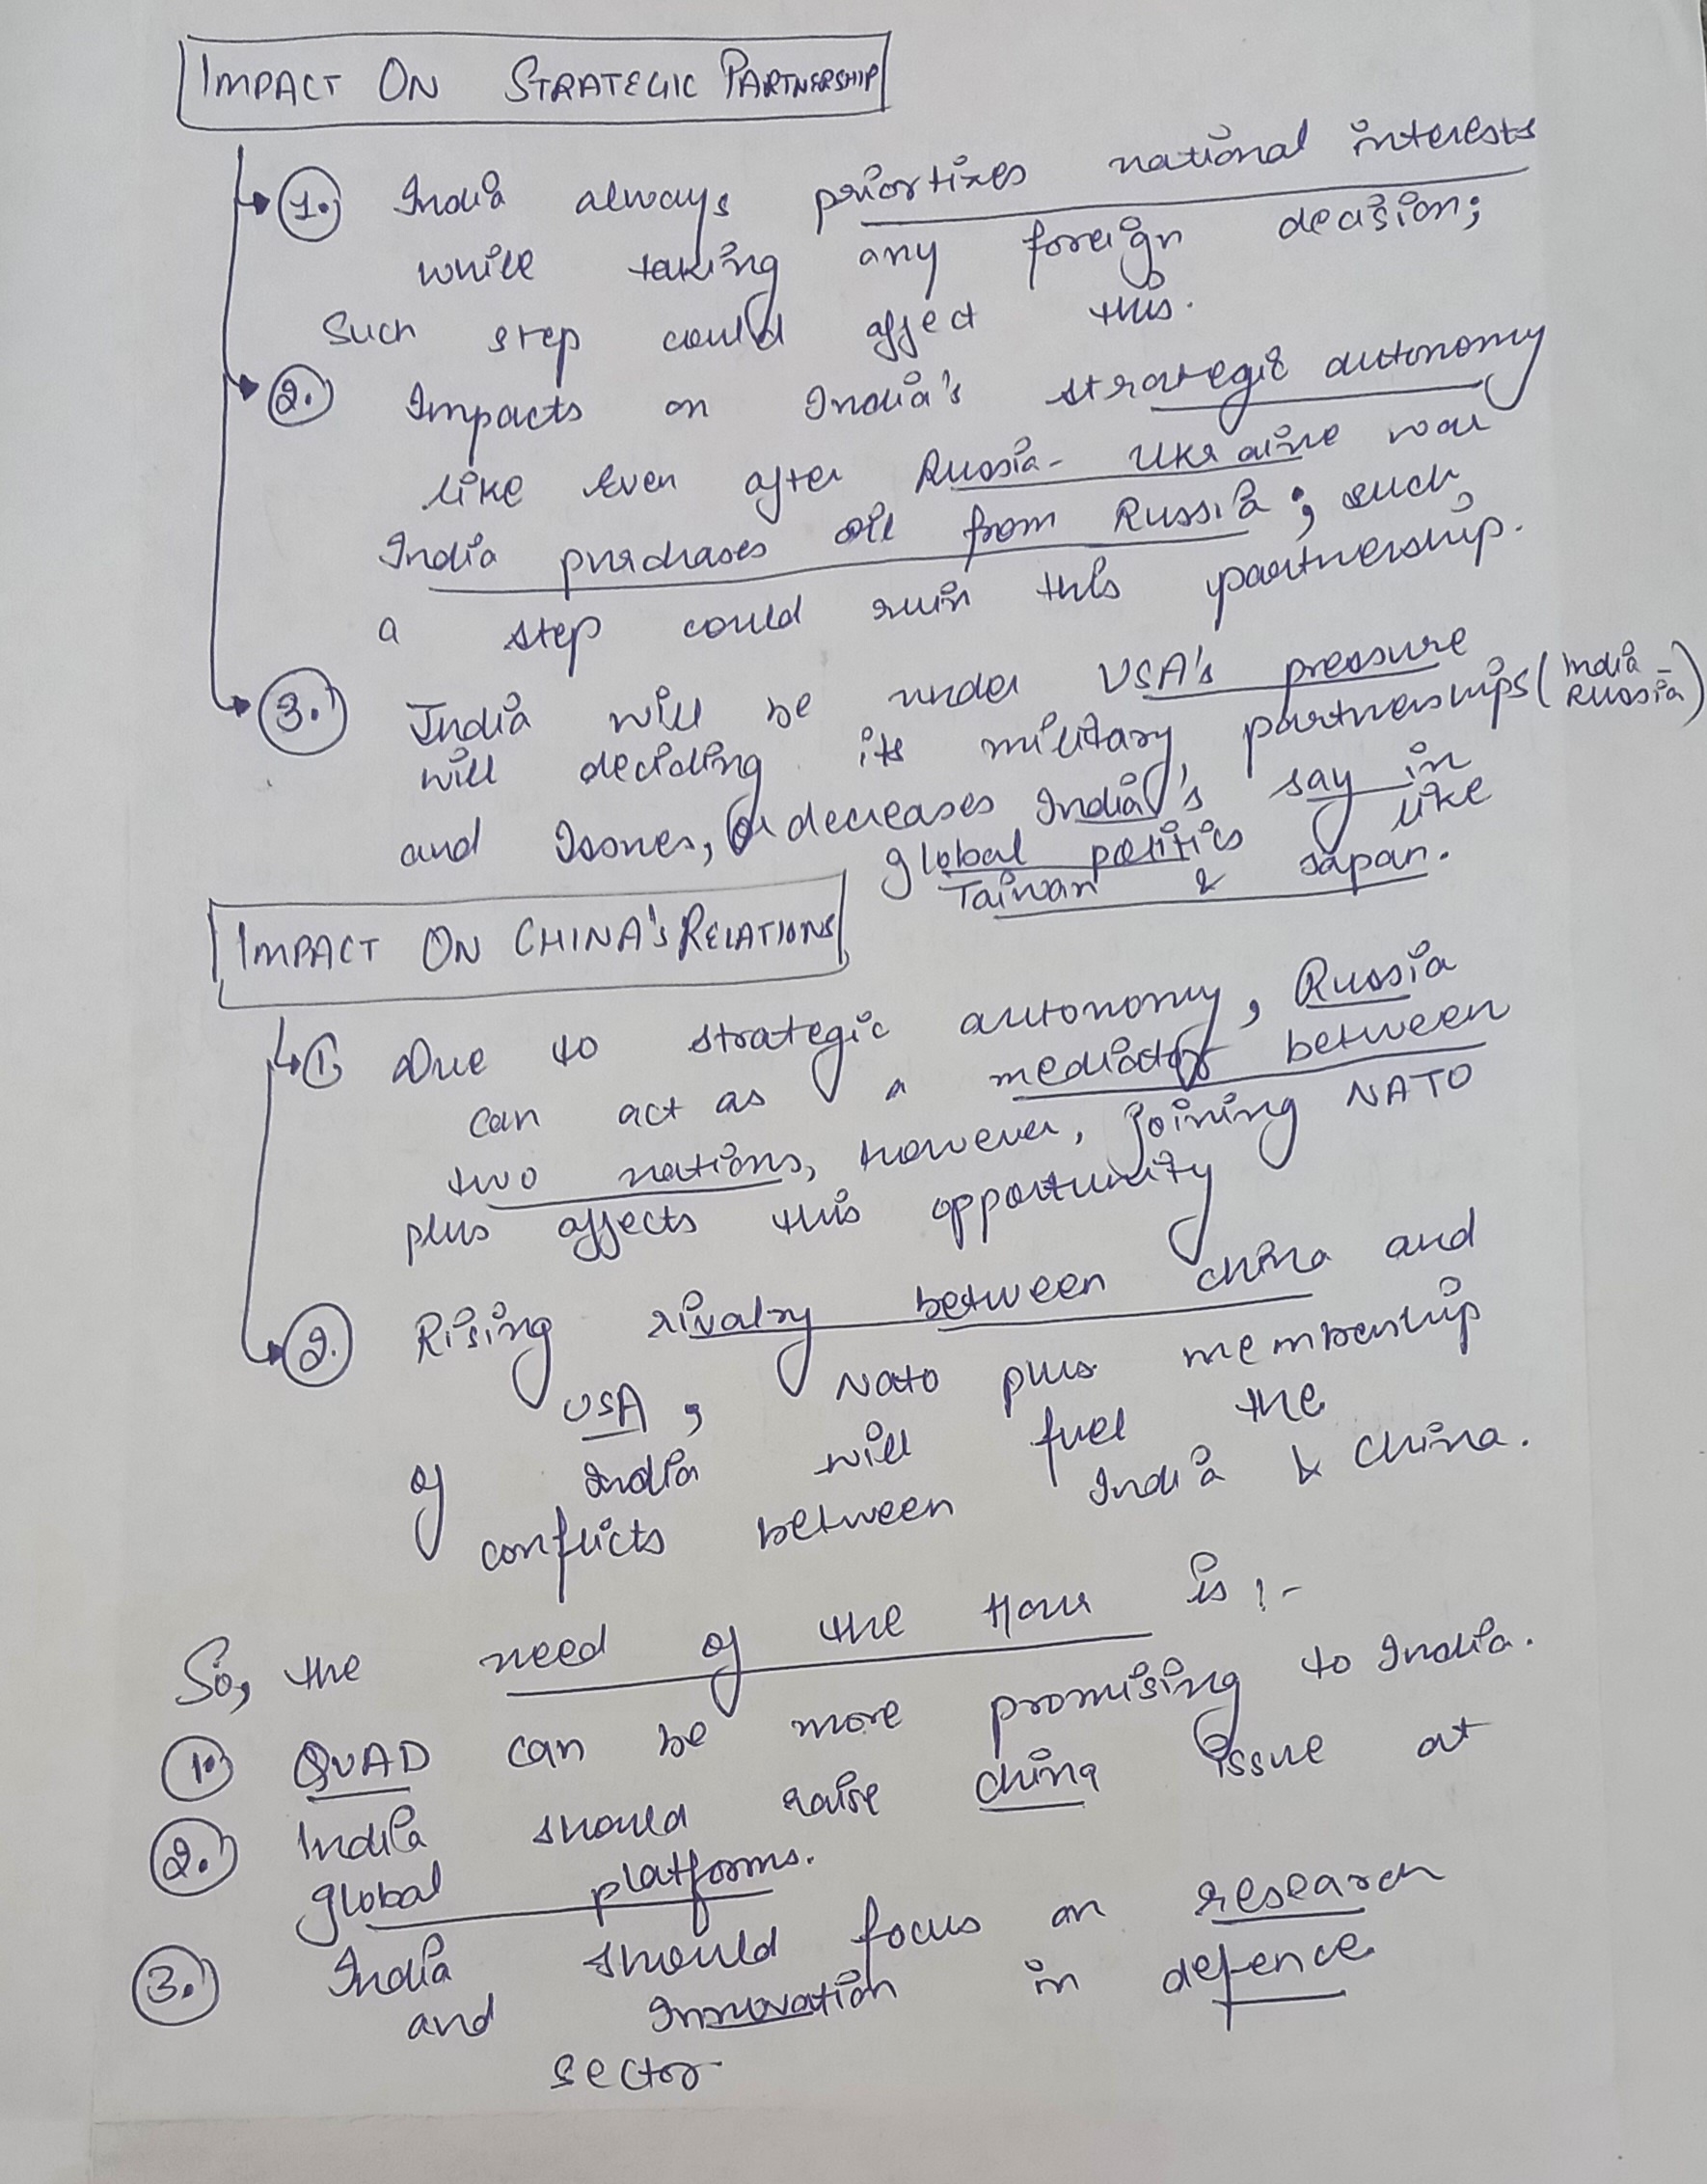 IMPACT ON STRATEGIC PARTNERSHIP
1. India always priortizes national interests
while taking any foreign decision;
Such step could affect this.
2. Impacts on India's strategic autonomy
like even after Russia-Ukraine war
India purchases oil from Russia; such
a step could ruin this partnership.
3. India will be under USA's pressure
will deciding its military partnerships (India-
Russia)
and Issues, decreases India's say in
global politics like
Taiwan & Japan.
IMPACT ON CHINA'S RELATIONS
1 Due to strategic autonomy, Russia
can act as a mediator between
two nations, however, joining NATO
plus affects this opportunity
2. Rising rivalry between china and
USA, Nato plus membership
of India will fuel the
conflicts between India & China.
So, the need of the Hour is :-
1. QUAD can be more promising to India.
2. India should raise china issue at
global platforms.
3. India should focus on research
and Innovation in defence
sector